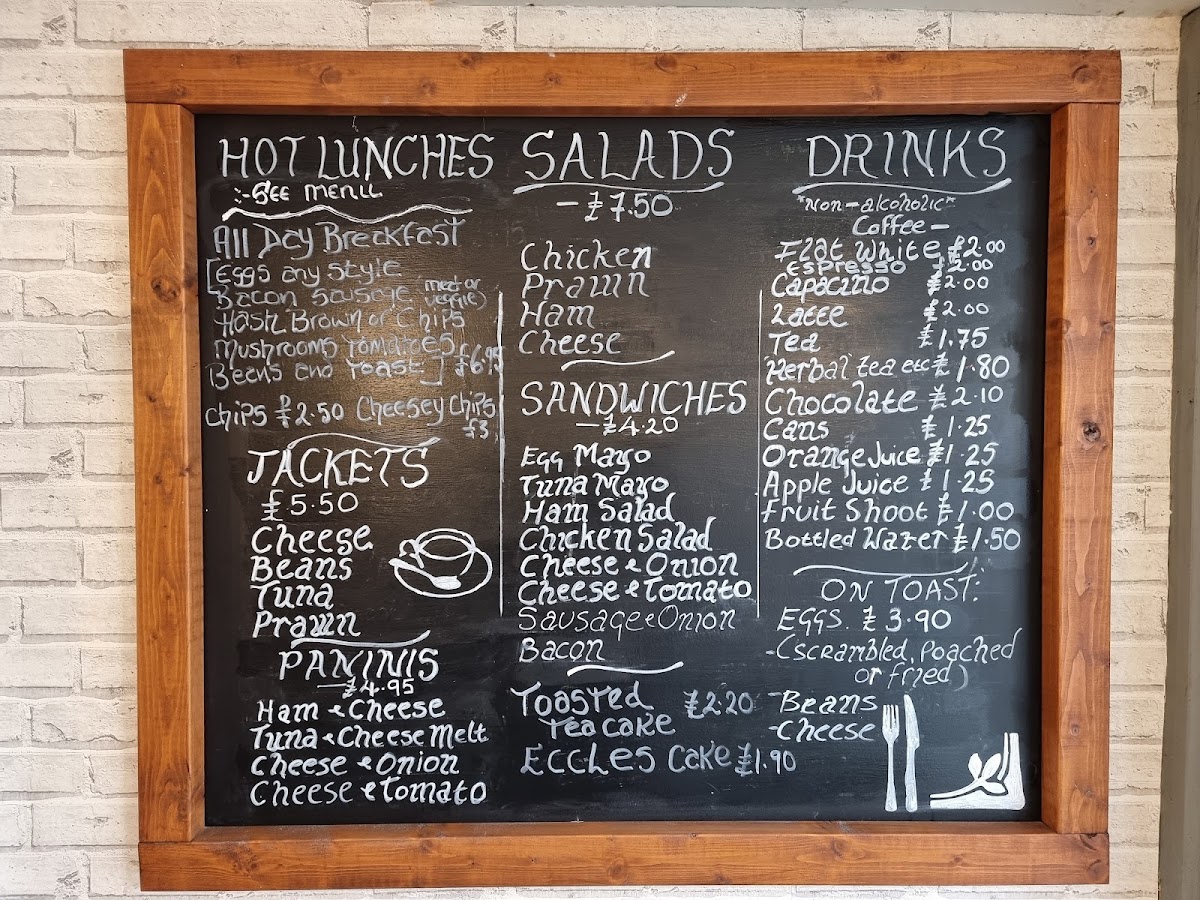 HOT LUNCHES
:-SEE MENU
All Day Breakfast
[Eggs any style
Bacon Sausage (meat or veggie)
Hash Brown or Chips
Mushrooms Tomatoes
Beens and Toast] £6.95
Chips £2.50 Cheesey Chips
£3
JACKETS
£5.50
Cheese
Beans
Tuna
Prawn
PANINIS
-£4.95
Ham & Cheese
Tuna & Cheese Melt
Cheese & Onion
Cheese & Tomato
SALADS
-£7.50
Chicken
Prawn
Ham
Cheese
SANDWICHES
-£4.20
Egg Mayo
Tuna Mayo
Ham Salad
Chicken Salad
Cheese & Onion
Cheese & Tomato
Sausage & Onion
Bacon
Toasted £2.20
Tea Cake
Eccles Cake £1.90
DRINKS
"Non-alcoholic"
Coffee-
Flat White £2.00
Espresso £2.00
Capacino £2.00
Latte £2.00
Tea £1.75
Herbal tea etc £1.80
Chocolate £2.10
Cans £1.25
Orange Juice £1.25
Apple Juice £1.25
Fruit Shoot £1.00
Bottled Water £1.50
ON TOAST:
EGGS. £3.90
-(Scrambled, Poached
or fried)
-Beans
-Cheese